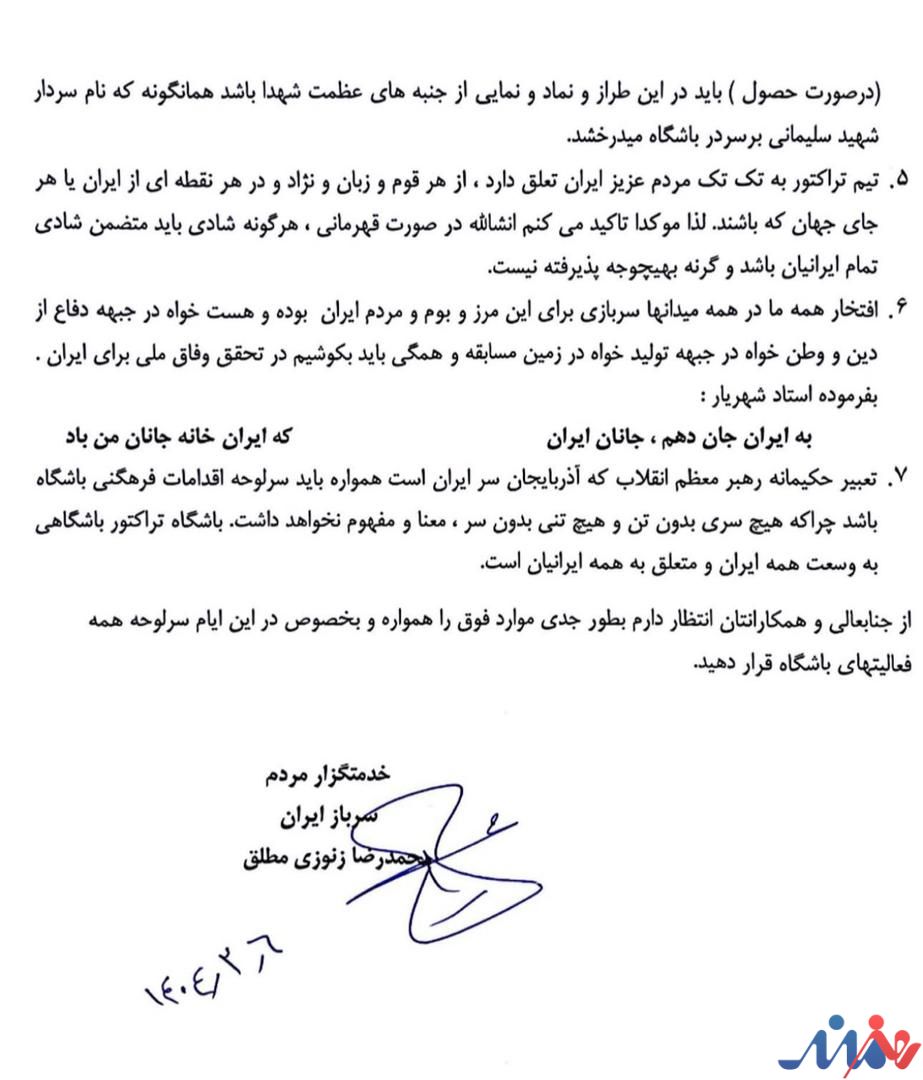 (درصورت حصول ) باید در این طراز و نماد و نمایی از جنبه های عظمت شهدا باشد همانگونه که نام سردار
شهید سلیمانی برسردر باشگاه میدرخشد.
۵. تیم تراکتور به تک تک مردم عزیز ایران تعلق دارد ، از هر قوم و زبان و نژاد و در هر نقطه ای از ایران یا هر
جای جهان که باشند. لذا موکدا تاکید می کنم انشالله در صورت قهرمانی ، هرگونه شادی باید متضمن شادی
تمام ایرانیان باشد و گرنه بهیچوجه پذیرفته نیست.
۶. افتخار همه ما در همه میدانها سربازی برای این مرز و بوم و مردم ایران بوده و هست خواه در جبهه دفاع از
دین و وطن خواه در جبهه تولید خواه در زمین مسابقه و همگی باید بکوشیم در تحقق وفاق ملی برای ایران .
بفرموده استاد شهریار :
به ایران جان دهم ، جانان ایران که ایران خانه جانان من باد
۷. تعبیر حکیمانه رهبر معظم انقلاب که آذربایجان سر ایران است همواره باید سرلوحه اقدامات فرهگنی باشگاه
باشد چراکه هیچ سری بدون تن و هیچ تنی بدون سر ، معنا و مفهوم نخواهد داشت. باشگاه تراکتور باشگاهی
به وسعت همه ایران و متعلق به همه ایرانیان است.
از جنابعالی و همکارانتان انتظار دارم بطور جدی موارد فوق را همواره و بخصوص در این ایام سرلوحه همه
فعالیتهای باشگاه قرار دهید.
خدمتگزار مردم
سرباز ایران
محمدرضا زنوزی مطلق
۱٤۰٤٫۲٫٦